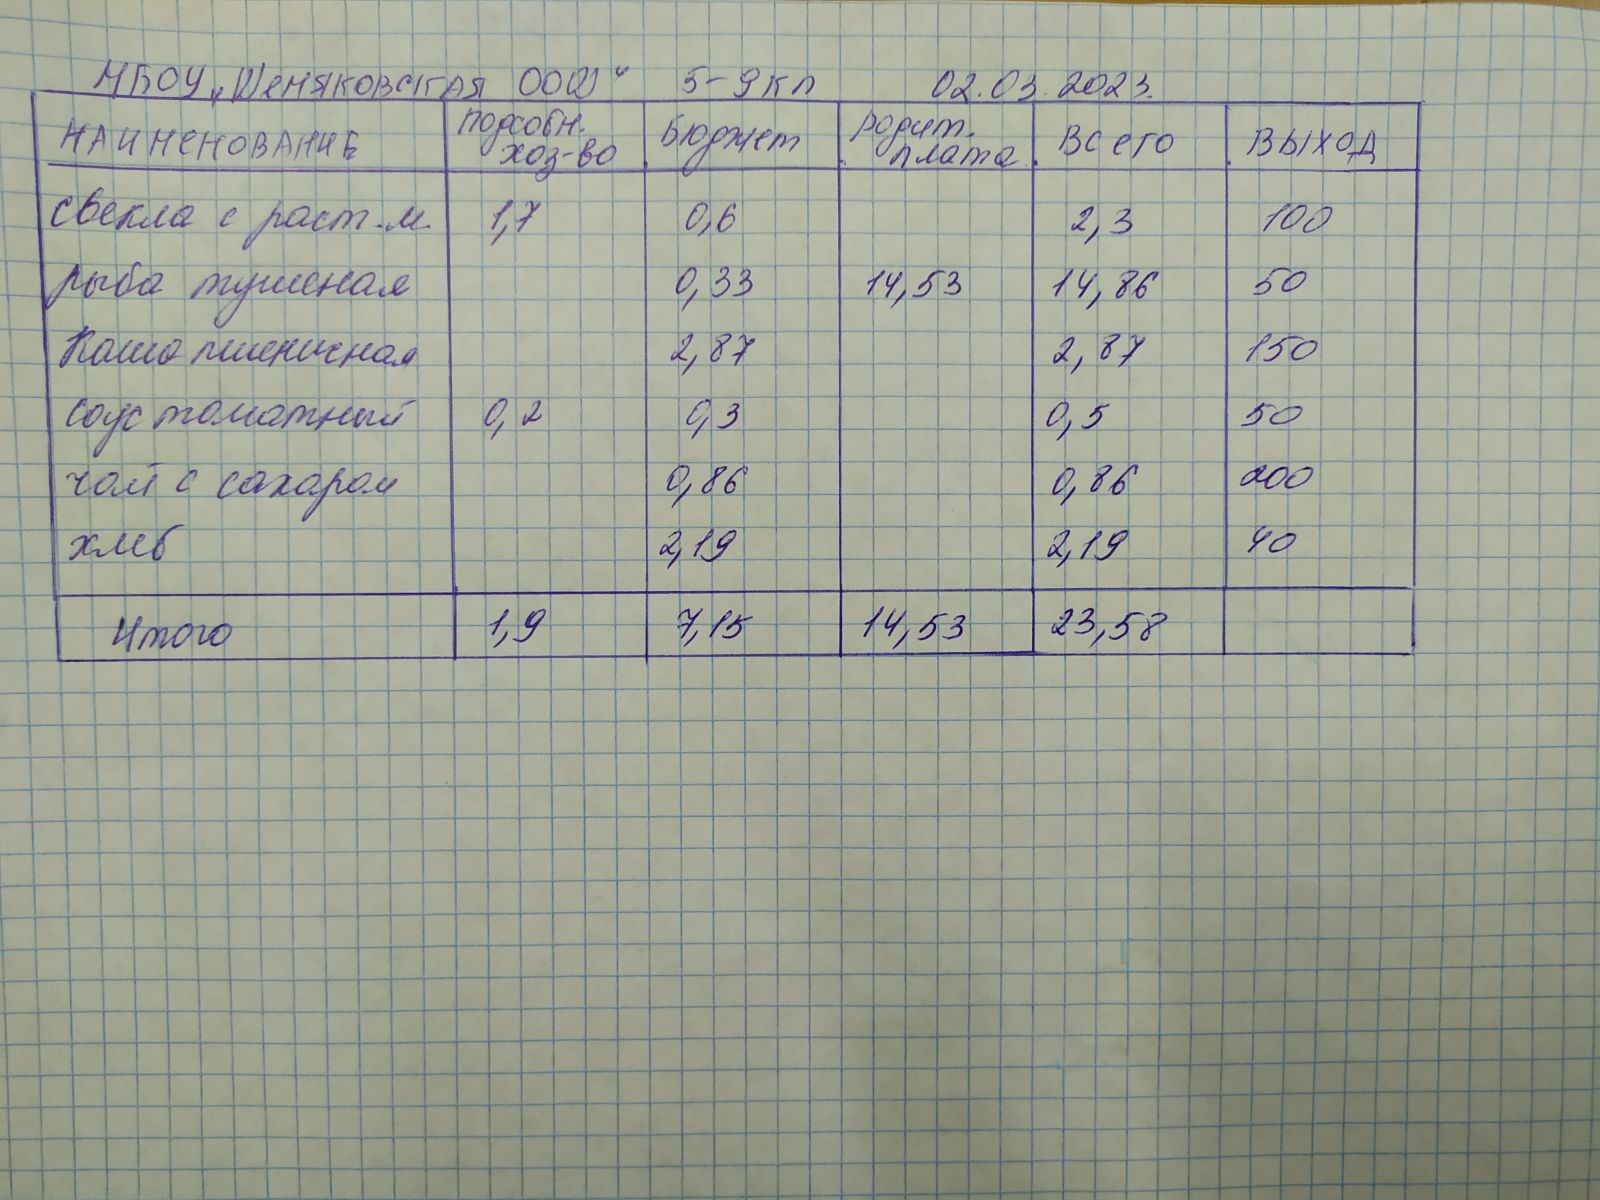 МБОУ „Шеняковская ООШ" 5-9 кл 02.03.2023.
НАИМЕНОВАНИЕ Подсобн. хоз-во Бюджет Родит. плата Всего ВЫХОД
свекла с раст.м. 1,7 0,6 2,3 100
рыба тушеная 0,33 14,53 14,86 50
Каша пшеничная 2,87 2,87 150
соус томатный 0,2 0,3 0,5 50
чай с сахаром 0,86 0,86 200
хлеб 2,19 2,19 40
Итого 1,9 7,15 14,53 23,58